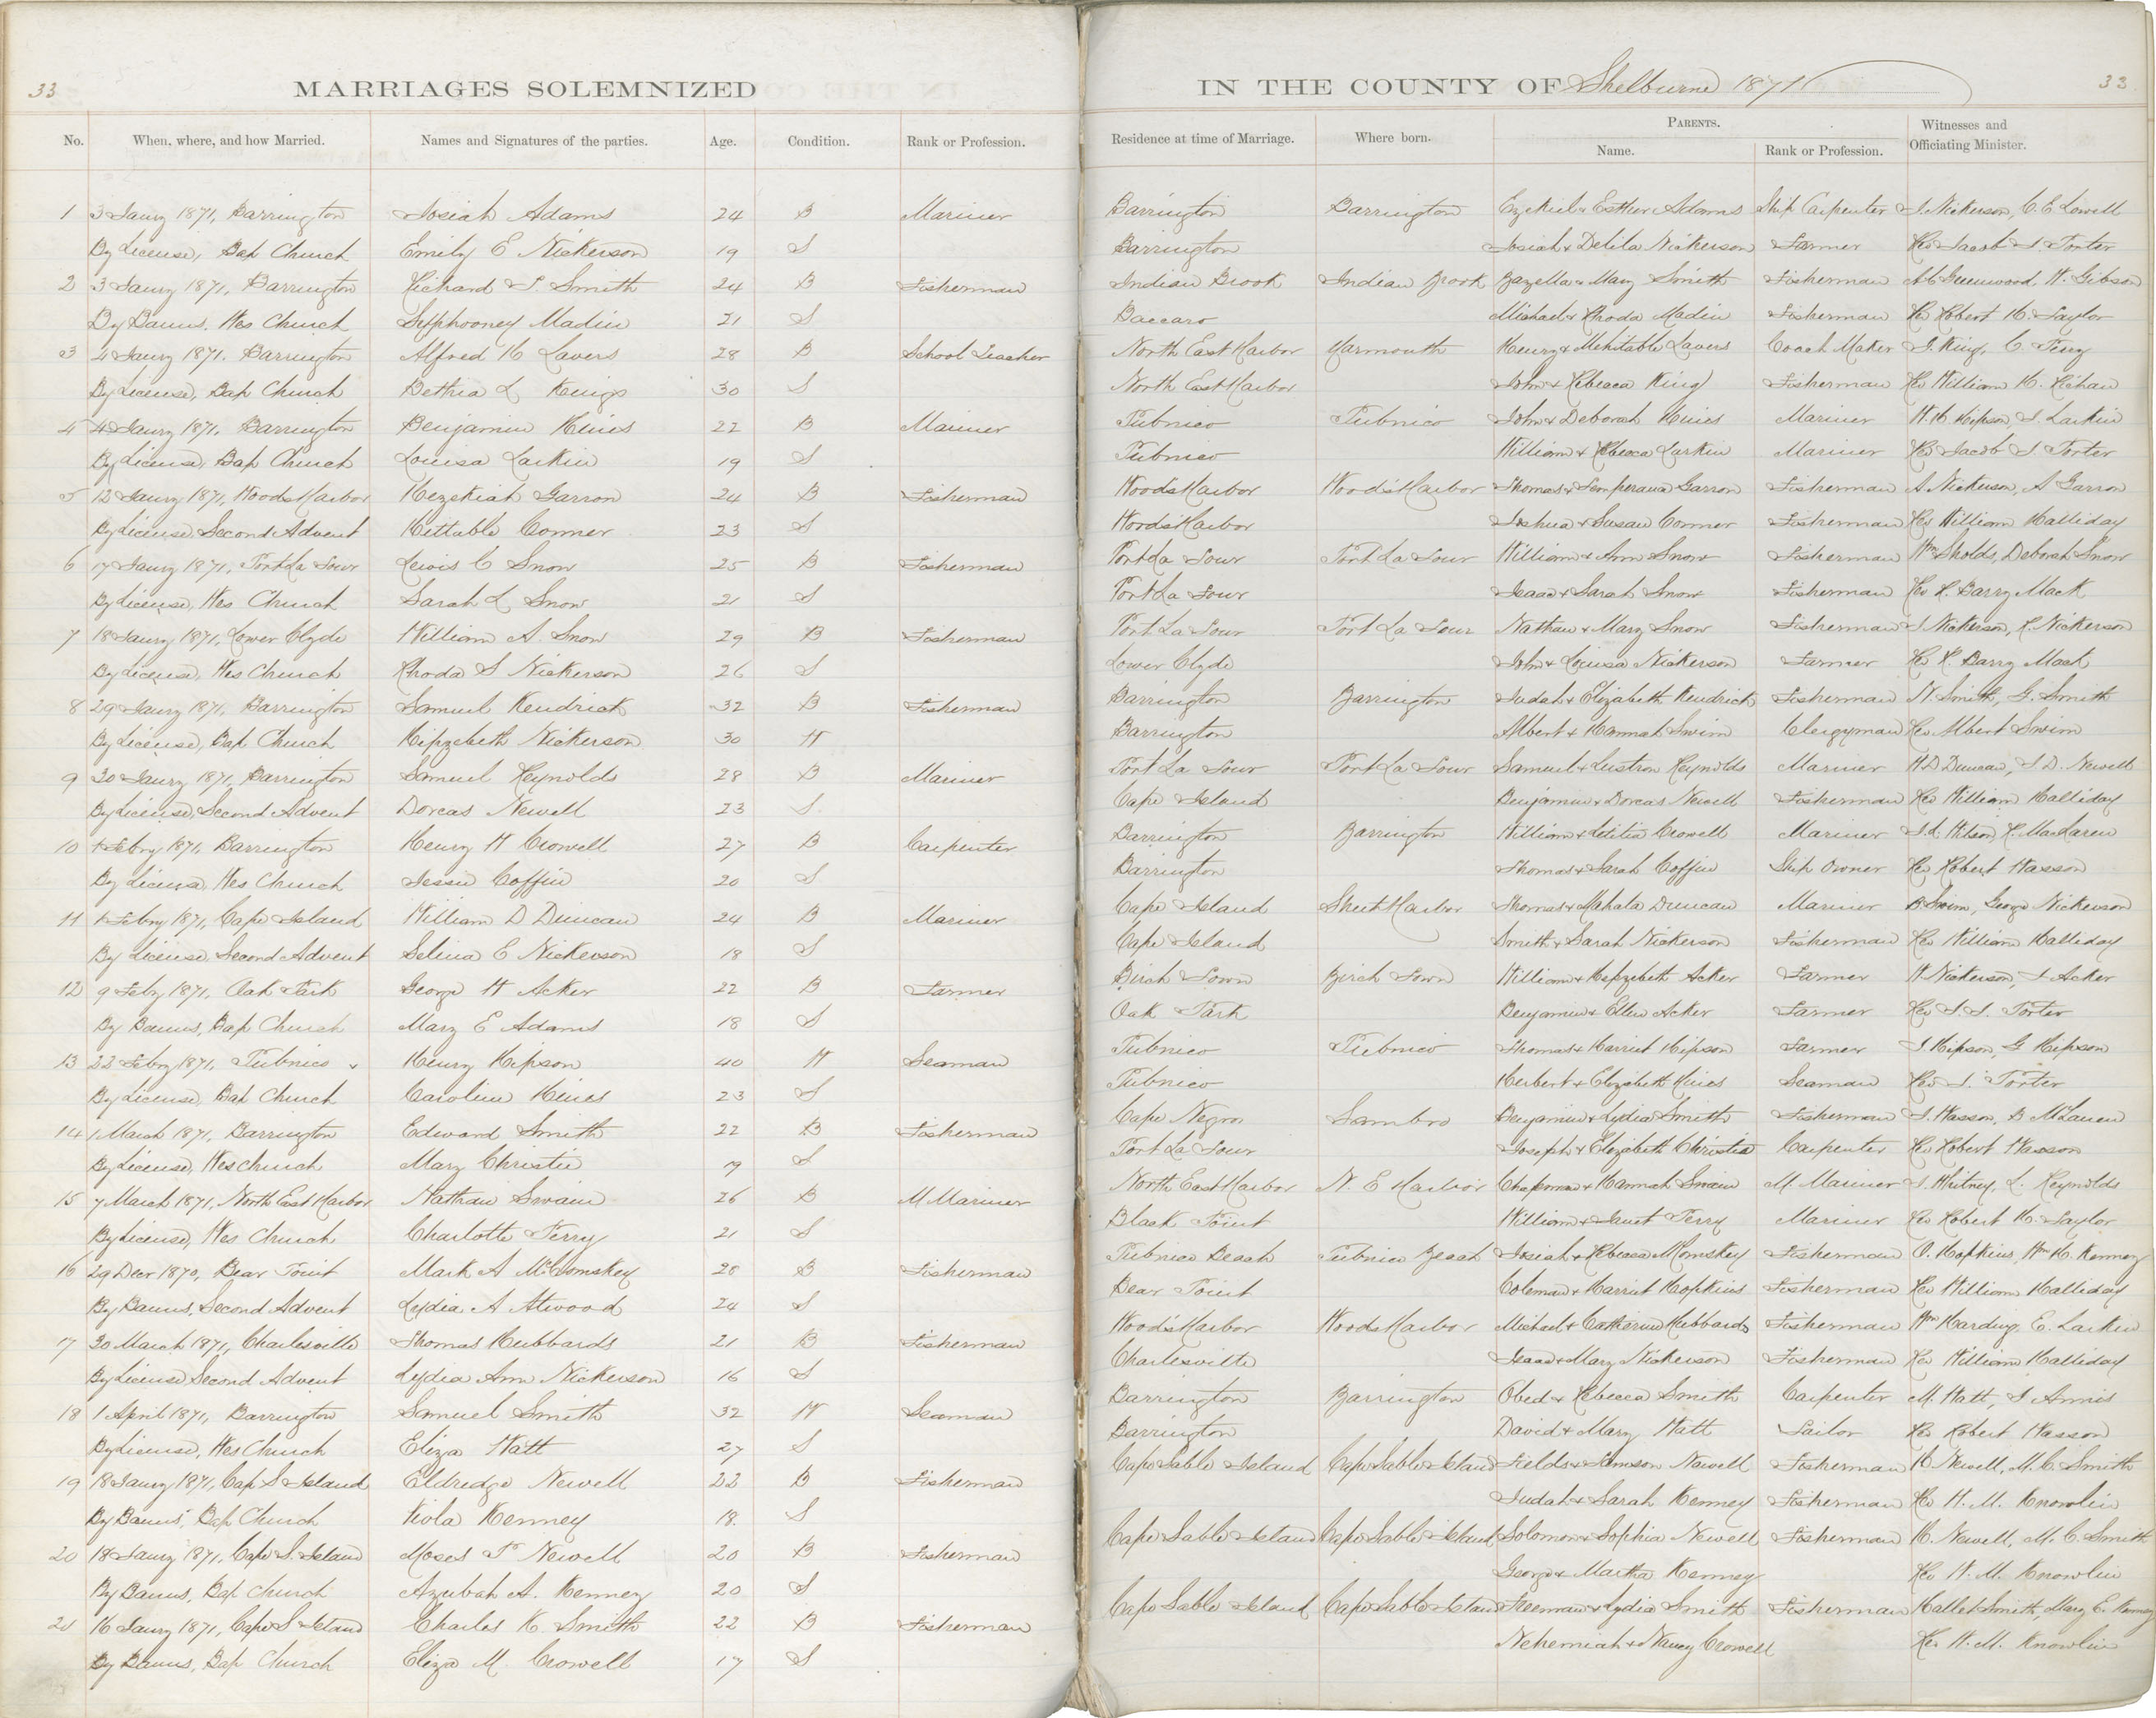 33 MARRIAGES SOLEMNIZED IN THE COUNTY OF Shelburne 1871 33
No. When, where, and how Married. Names and Signatures of the parties. Age. Condition. Rank or Profession. Residence at time of Marriage. Where born. PARENTS. Name. Rank or Profession. Witnesses and Officiating Minister.
1 3 Jaury 1871, Barrington Josiah Adams 24 B Mariner Barrington Barrington Ezekiel & Esther Adams Ship Carpenter J. Nickerson, C. E. Lowell
By License, Bap Church Emily E Nickerson 19 S Barrington Josiah & Delila Nickerson Farmer Rev Jacob I. Porter
2 3 Jaury 1871, Barrington Richard T. Smith 24 B Fisherman Indian Brook Indian Brook Mary Smith Fisherman A C Greenwood, W. Gibson
By Banns, Wes Church Madin 21 S Baccaro Michael & Rhoda Madin Fisherman Rev Robert H. Taylor
3 4 Jaury 1871, Barrington Alfred H Lavers 28 B School Teacher North East Harbor Yarmouth Henry & Mehitable Lavers Coach Maker J. King, C. Terry
By License, Bap Church Bethia L King 30 S North East Harbor John & Rebecca King Fisherman Rev William H. Richan
4 4 Jaury 1871, Barrington Benjamin Hines 22 B Mariner Pubnico Pubnico John & Deborah Hines Mariner W. H. Hipson, J. Larkin
By License, Bap Church Louisa Larkin 19 S Pubnico William & Rebecca Larkin Mariner Rev Jacob I. Porter
5 12 Jaury 1871, Woods Harbor Hezekiah Garron 24 B Fisherman Woods Harbor Woods Harbor Thomas & Temperance Garron Fisherman A Nickerson, A Garron
By License, Second Advent Hittable Conner 23 S Woods Harbor Joshua & Susan Conner Fisherman Rev William Halliday
6 17 Jaury 1871, Port La Tour Lewis C Snow 25 B Fisherman Port La Tour Port La Tour William & Ann Snow Fisherman Wm Sholds, Deborah Snow
By License, Wes Church Sarah L Snow 21 S Port La Tour Isaac & Sarah Snow Fisherman Rev R. Barry Mack
7 18 Jaury 1871, Lower Clyde William A. Snow 29 B Fisherman Port La Tour Port La Tour Nathan & Mary Snow Fisherman J Nickerson, R. Nickerson
By License, Wes Church Rhoda S Nickerson 26 S Lower Clyde John & Louisa Nickerson Farmer Rev R. Barry Mack
8 29 Jaury 1871, Barrington Samuel Kendrick 32 B Fisherman Barrington Barrington Judah & Elizabeth Kendrick Fisherman W. Smith, G. Smith
By License, Bap Church Hipzebeth Nickerson 30 W Barrington Albert & Hannah Swim Clergyman Rev Albert Swim
9 30 Jaury 1871, Barrington Samuel Reynolds 28 B Mariner Port La Tour Port La Tour Samuel & Reynolds Mariner W D Duncan, J. D. Newell
By License, Second Advent Dorcas Newell 23 S. Cape Island Benjamin & Dorcas Newell Fisherman Rev William Halliday
10 1 Febry 1871, Barrington Henry W Crowell 27 B Carpenter Barrington Barrington William & Letitia Crowell Mariner J. L. Wilson, R. MacLaren
By License, Wes Church Jessie Coffin 20 S Barrington Thomas & Sarah Coffin Ship Owner Rev Robert Wasson
11 1 Febry 1871, Cape Island William D Duncan 24 B Mariner Cape Island Sheet Harbor Thomas & Mahala Duncan Mariner B Swim, George Nickerson
By License, Second Advent Selina E Nickerson 18 S Cape Island Smith & Sarah Nickerson Fisherman Rev William Halliday
12 9 Feby 1871, Oak Park George W Acker 22 B Farmer Birch Town Birch Town William & Hepzibeth Acker Farmer W Nickerson, J Acker
By Banns, Bap Church Mary E Adams 18 S Oak Park Benjamin & Ellen Acker Farmer Rev J. I. Porter
13 22 Febry 1871, Pubnico Henry Hipson 40 W Seaman Pubnico Pubnico Thomas & Harriet Hipson Farmer J. Hipson, G Hipson
By License, Bap Church Caroline Hines 23 S Pubnico Herbert & Elizabeth Hines Seaman Rev I. Porter
14 1 March 1871, Barrington Edward Smith 22 B Fisherman Cape Negro Sambro Benjamin & Lydia Smith Fisherman J. Wasson, B McLaren
By License, Wes church Mary Christie 19 S Port La Tour Joseph & Elizabeth Christie Carpenter Rev Robert Wasson
15 7 March 1871, North East Harbor Nathan Swain 26 B M Mariner North East Harbor N. E Harbor Chapman & Hannah Swain M. Mariner J. Whitney, L. Reynolds
By License, Wes Church Charlotte Perry 21 S Black Point William & Janet Perry Mariner Rev Robert H. Taylor
16 29 Decr 1870, Bear Point Mark A McComskey 28 B Fisherman Pubnico Beach Pubnico Beach Josiah & Rebecca McComskey Fisherman O. Hopkins, Wm H. Kenney
By Banns, Second Advent Lydia A Atwood 24 S Bear Point Coleman & Harriet Hopkins Fisherman Rev William Halliday
17 30 March 1871, Charlesville Thomas Hubbards 21 B Fisherman Woods Harbor Woods Harbor Michael & Catharine Hubbards Fisherman Wm Harding, E. Larkin
By License, Second Advent Lydia Ann Nickerson 16 S Charlesville Isaac & Mary Nickerson Fisherman Rev William Halliday
18 1 April 1871, Barrington Samuel Smith 32 W Seaman Barrington Barrington Obed & Rebecca Smith Carpenter M. Watt, J. Annis
By License, Wes Church Eliza Watt 27 S Barrington David & Mary Watt Sailor Rev Robert Wasson
19 18 Jaury 1871, Cap S Island Eldredge Newell 22 B Fisherman Cape Sable Island Cape Sable Island Fields & Newell Fisherman H. Newell, M. C. Smith
By Banns, Bap Church Viola Kenney 18. S Judah & Sarah Kenney Fisherman Rev W. M. Knowlin
20 18 Jaury 1871, Cape S. Island Moses T Newell 20 B Fisherman Cape Sable Island Cape Sable Island Solomon & Sophia Newell Fisherman H. Newell, M. C. Smith
By Banns, Bap Church Azubah A. Kenney 20 S George & Martha Kenney Rev W. M. Knowlin
21 16 Jaury 1871, Cape S Island Charles K Smith 22 B Fisherman Cape Sable Island Cape Sable Island Freeman & Lydia Smith Fisherman Hallet Smith, Mary E. Kenney
By Banns, Bap Church Eliza M. Crowell 17 S Nehemiah & Nancy Crowell Rev W. M. Knowlin